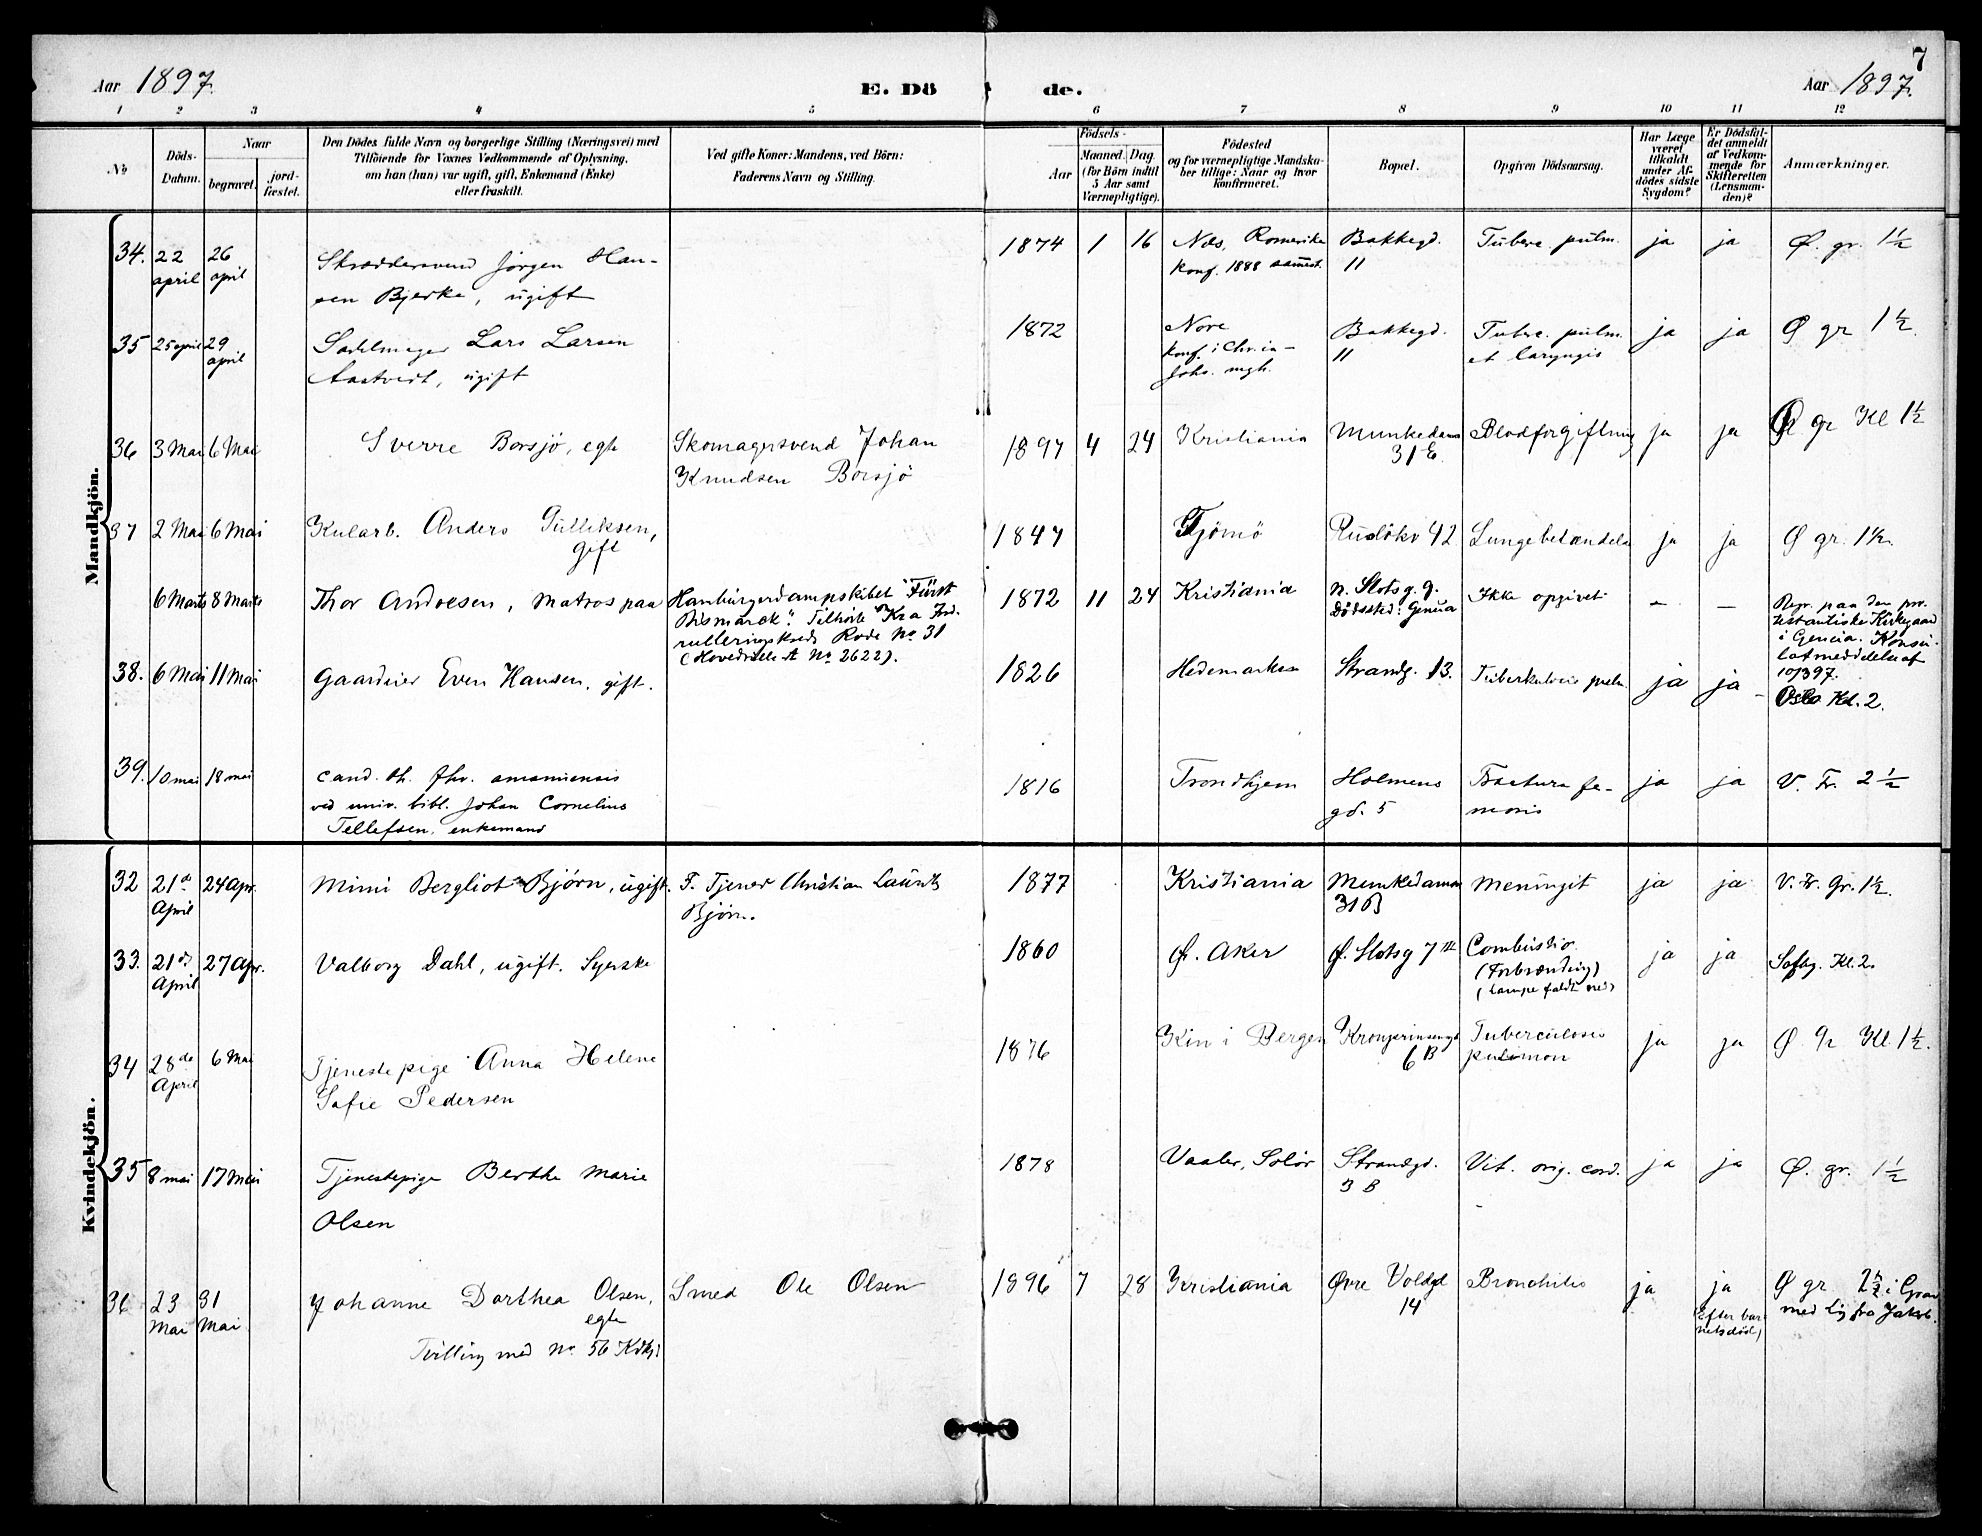 7
Aar 1897.
E. Dö de.
Aar 1897.
1 2 3 4 5 6 7 8 9 10 11 12
No
Döds-
Datum.
Naar
begravet.
jord-
fæstet.
Den Dödes fulde Navn og borgerlige Stilling (Næringsvei) med
Tilföiende for Voxnes Vedkommende af Oplysning,
om han (hun) var ugift, gift, Enkemand (Enke)
eller fraskilt.
Ved gifte Koner: Mandens, ved Börn:
Faderens Navn og Stilling.
Födsels-
Aar
Maaned. Dag
(for Börn indtil
5 Aar samt
Værnepligtige).
Födested
og for værnepligtige Mandska-
ber tillige: Naar og hvor
konfirmeret.
Bopæl.
Opgiven Dödsaarsag.
Har Læge
været
tilkaldt
under Af-
dödes sidste
Sygdom?
Er Dödsfal-
det anmeldt
af Vedkom-
mende for
Skifteretten
(Lensman-
den)?
Anmærkninger.
Mandkjön.
34. 22 april 26 april
Skræddersvend Jørgen Han-
sen Bjerke, ugift
1874 1 16
Næs, Romerike
konf. 1888 sammest.
Bakkegd.
11
Tuberc. pulm.
ja ja
Ø. gr. 1½
35 25 april 29 april
Sadelmager Lars Larsen
Aastvedt, ugift
1872
Nore
konf. i Chr.ia-
Johs. mgh.
Bakkegd.
11
Tuberc. pulm.
et laryngis
ja ja
Ø gr 1½.
36 3 Mai 6 Mai
Sverre Borsjö, egte
Skomagersvend Johan
Knudsen Borsjö
1897 4 24
Kristiania
Munkedams
31 E
Blodforgiftning
ja ja
Ø gr Kl 1½
37 2 Mai 6 Mai
Kularb. Anders Gulliksen,
gift
1847
Tjömö
Rusløkv 42
Lungebetændelse
ja ja
Ø gr. 1½.
6 Marts 8 Marts
Thor Andresen, Matros paa
Hamburgerdampskibet "Fürst
Bismarck". Tilhörte Kra Ind-
rulleringskreds Rode No 31
(Hovedrulle A No 2622).
1872 11 24
Kristiania
n. Slotsg. 9.
Dödssted: Genua
Ikke opgivet
— —
Begr. paa den pro-
testantiske Kirkegaard
i Genua. Konsu-
latmeddelelse af
10/3 97.
38. 6 Mai 11 Mai
Gaardeier Even Hansen, gift.
1826
Hedemarken
Strandg. 13.
Tuberkulosis pulm.
ja ja
Oslo Kl. 2.
39. 10 mai 18 mai
cand. th. fhv. amanuensis
ved univ. bibl. Johan Cornelius
Tellefsen, enkemand
1816
Trondhjem
Holmens
gd. 5
Fractura fe-
moris
ja ja
V. Fr. 2½
Kvindekjön.
32 21de April 24 Apr.
Mimi Bergliot Bjørn, ugift.
F. Tjener Christian Laurits
Bjørn.
1877
Kristiania
Munkedamsv
31 B
Meningit
ja ja
V. Fr. Gr. 1½.
33. 21de April 27 Apr.
Valborg Dahl, ugift. Syerske
1860
Ø. Aker
Ø. Slotsg 7 III
Combustio
(Forbrænding)
(Lampe faldt ned)
ja ja
Sofbg. Kl. 2.
34 28de April 6 Mai
Tjenestepige Anna Helene
Sofie Pedersen
1876
Kin i Bergen
Kronprinsensgd
6 B
Tuberculosis
pulmon
ja ja
Ø gr Kl 1½.
35 8 mai 17 Mai
Tjenestepige Berthe Marie
Olsen
1878
Vaaler, Solör
Strandgd.
3 B
Vit. orig. cord.
ja ja
Ø. gr. 1½
36 23 Mai 31 Mai
Johanne Dorthea Olsen,
egte
Tvilling med No. 56 Kdkj.
Smed Ole Olsen
1896 7 28
Kristiania
Øvre Voldgd
14
Bronchitis
ja ja
(Efter bar-
netsdöd)
Ø gr 2½ i Grav
med Lig fra Jakob.